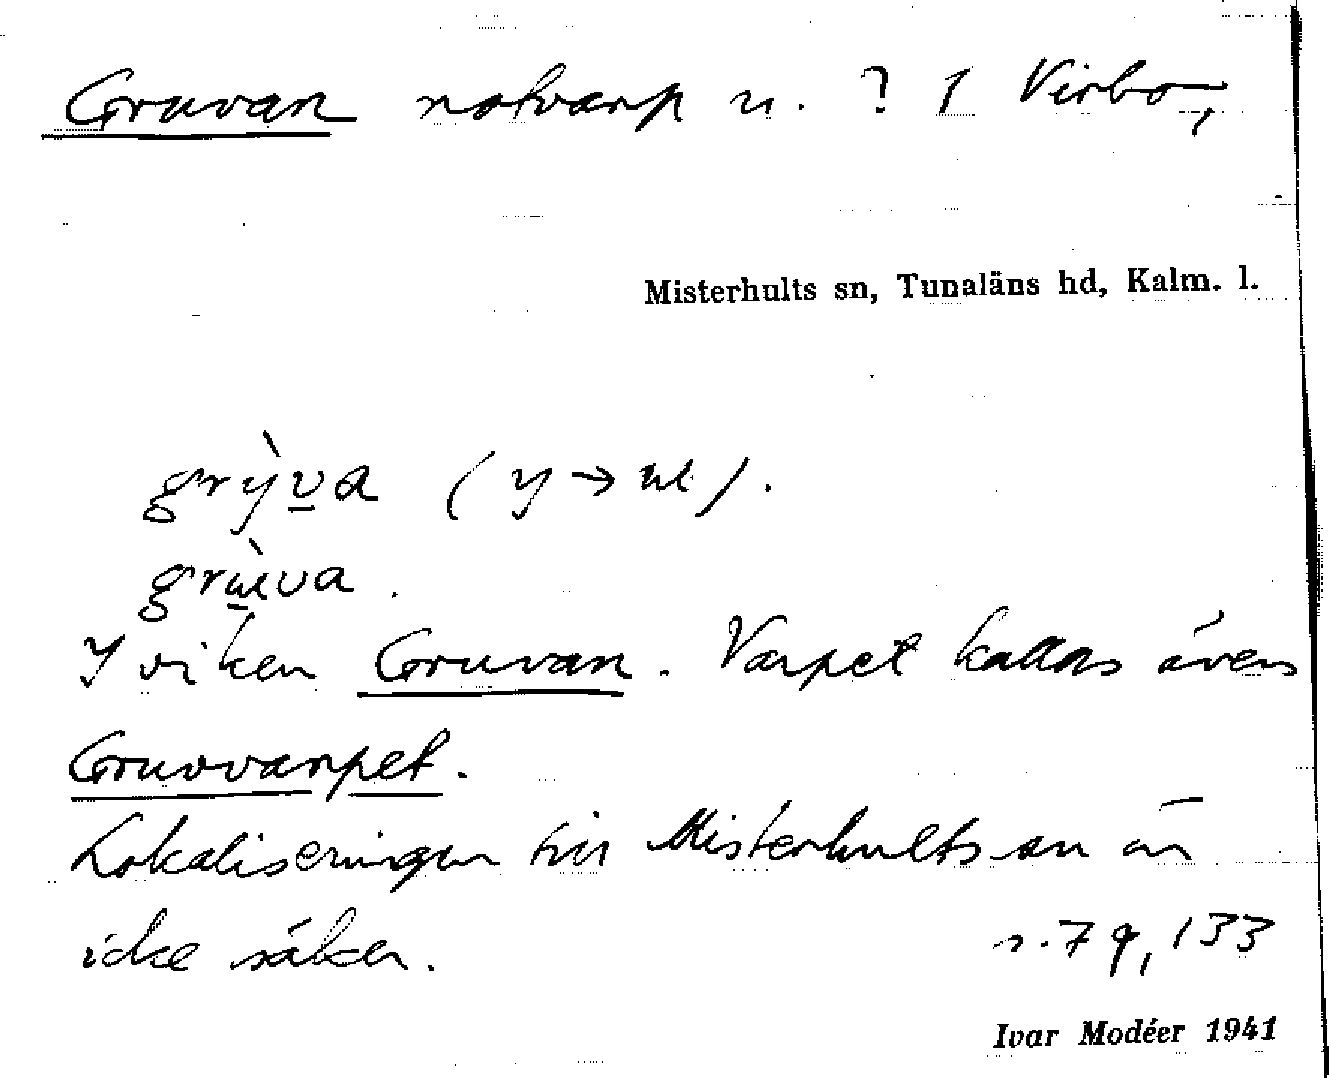 Gruvan notvarp n. ? f Virbo,
Misterhults sn, Tunaläns hd, Kalm. l.
grỳva (y → ɯ).
grɯ̀va.
I viken Gruvan. Varpet kallas även
Gruvvarpet.
Lokaliseringen till Misterhults sn är
icke säker.
s. 79, 133
Ivar Modéer 1941